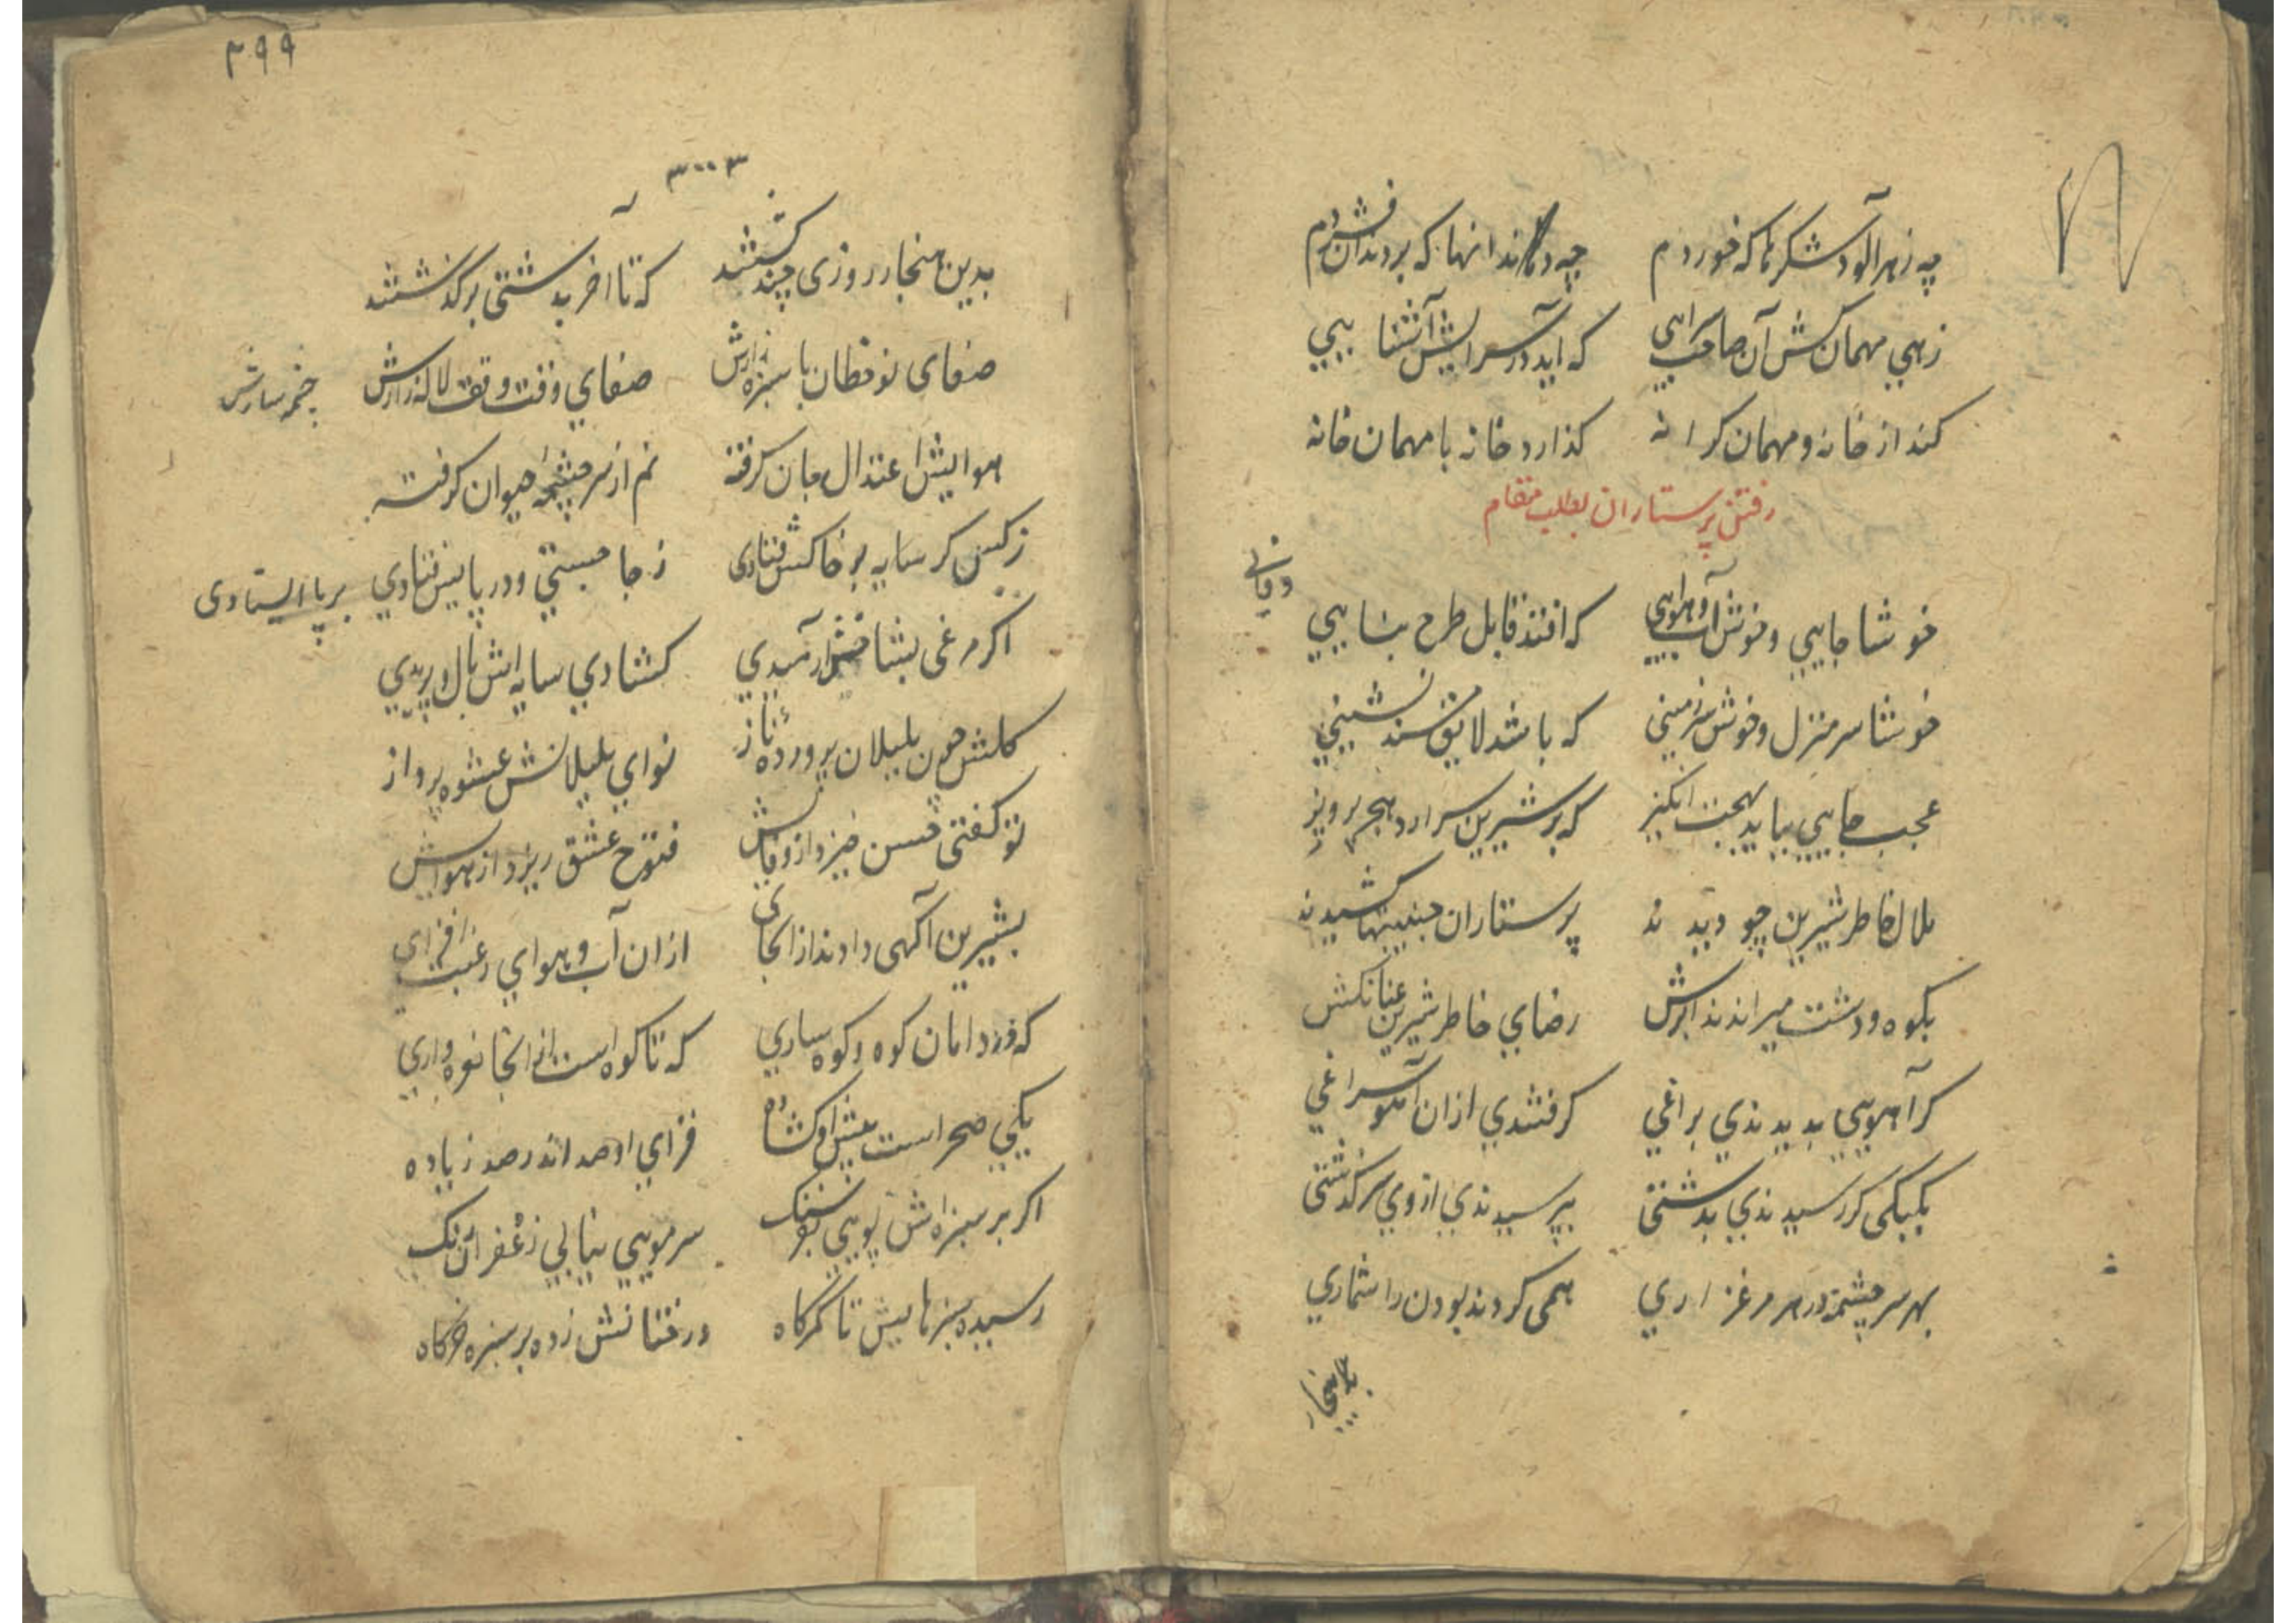 چه زهرآلود شکرها که خوردم چه دندانها که بر دندان فشردم
زهی مهمان کش آن صاحب سرایی که اید در سرایش آشنایی
کند از خانه و مهمان کرانه کذارد خانه با مهمان خانه
رفتن پرستاران بطلب مقام
خوشا جایی و خوش آب و هوایی که افتد قابل طرح بنایی
خوشا سر منزل و خوش سرزمینی که باشد لایق مسندنشینی
عجب جایی بباید بهجت انکیز که بر شیرین سرارد هجر پرویز
ملال خاطر شیرین چو دیدند پرستاران جنیبتها کشیدند
بکوه و دشت میراندند ابرش رضای خاطر شیرین عنانکش
کر آهویی بدیدندی براغی کرفتندی ازان آهو سراغی
بکبکی کر رسیدندی بدشتی بپرسیدندی از وی سرکذشتی
بهر سرچشمه در هر مرغزاری همی کردند بودن را شماری
بدین هنجار
۳۹۹
بدین هنجار روزی چند کشتند که تا اخر بدشتی برکذشتند
صفای نوخطان با سبزه زارش صفای وقت وقف لاله زارش
هوایش اعتدال جان کرفته نم از سرچشمه حیوان کرفته
ز کس کر سایه بر خاکش فتادی ز جا جستی و در پایش فتادی بر پا ایستادی
اکر مرغی بشاخش آرمیدی کشادی سایه اش بال و پریدی
کلش چون بلبلان پرورده ناز نوای بلبلانش عشوه پرداز
تو کفتی حسن خیزد از فضایش فتوح عشق ریزد از هوایش
بشیرین آکهی دادند ازانجای ازان آب و هوای رغبت افزای
که در دامان کوه و کوهساری که تا کوه است ازانجا نعره واری
یکی صحراست پیش او کشاده فزای او صد اندر صد زیاده
اکر بر سبزه اش پویی بفرسنک سر مویی نیابی زعفران رنک
رسیده سبزهایش تا کمرکاه درختانش زده بر سبزه خرکاه